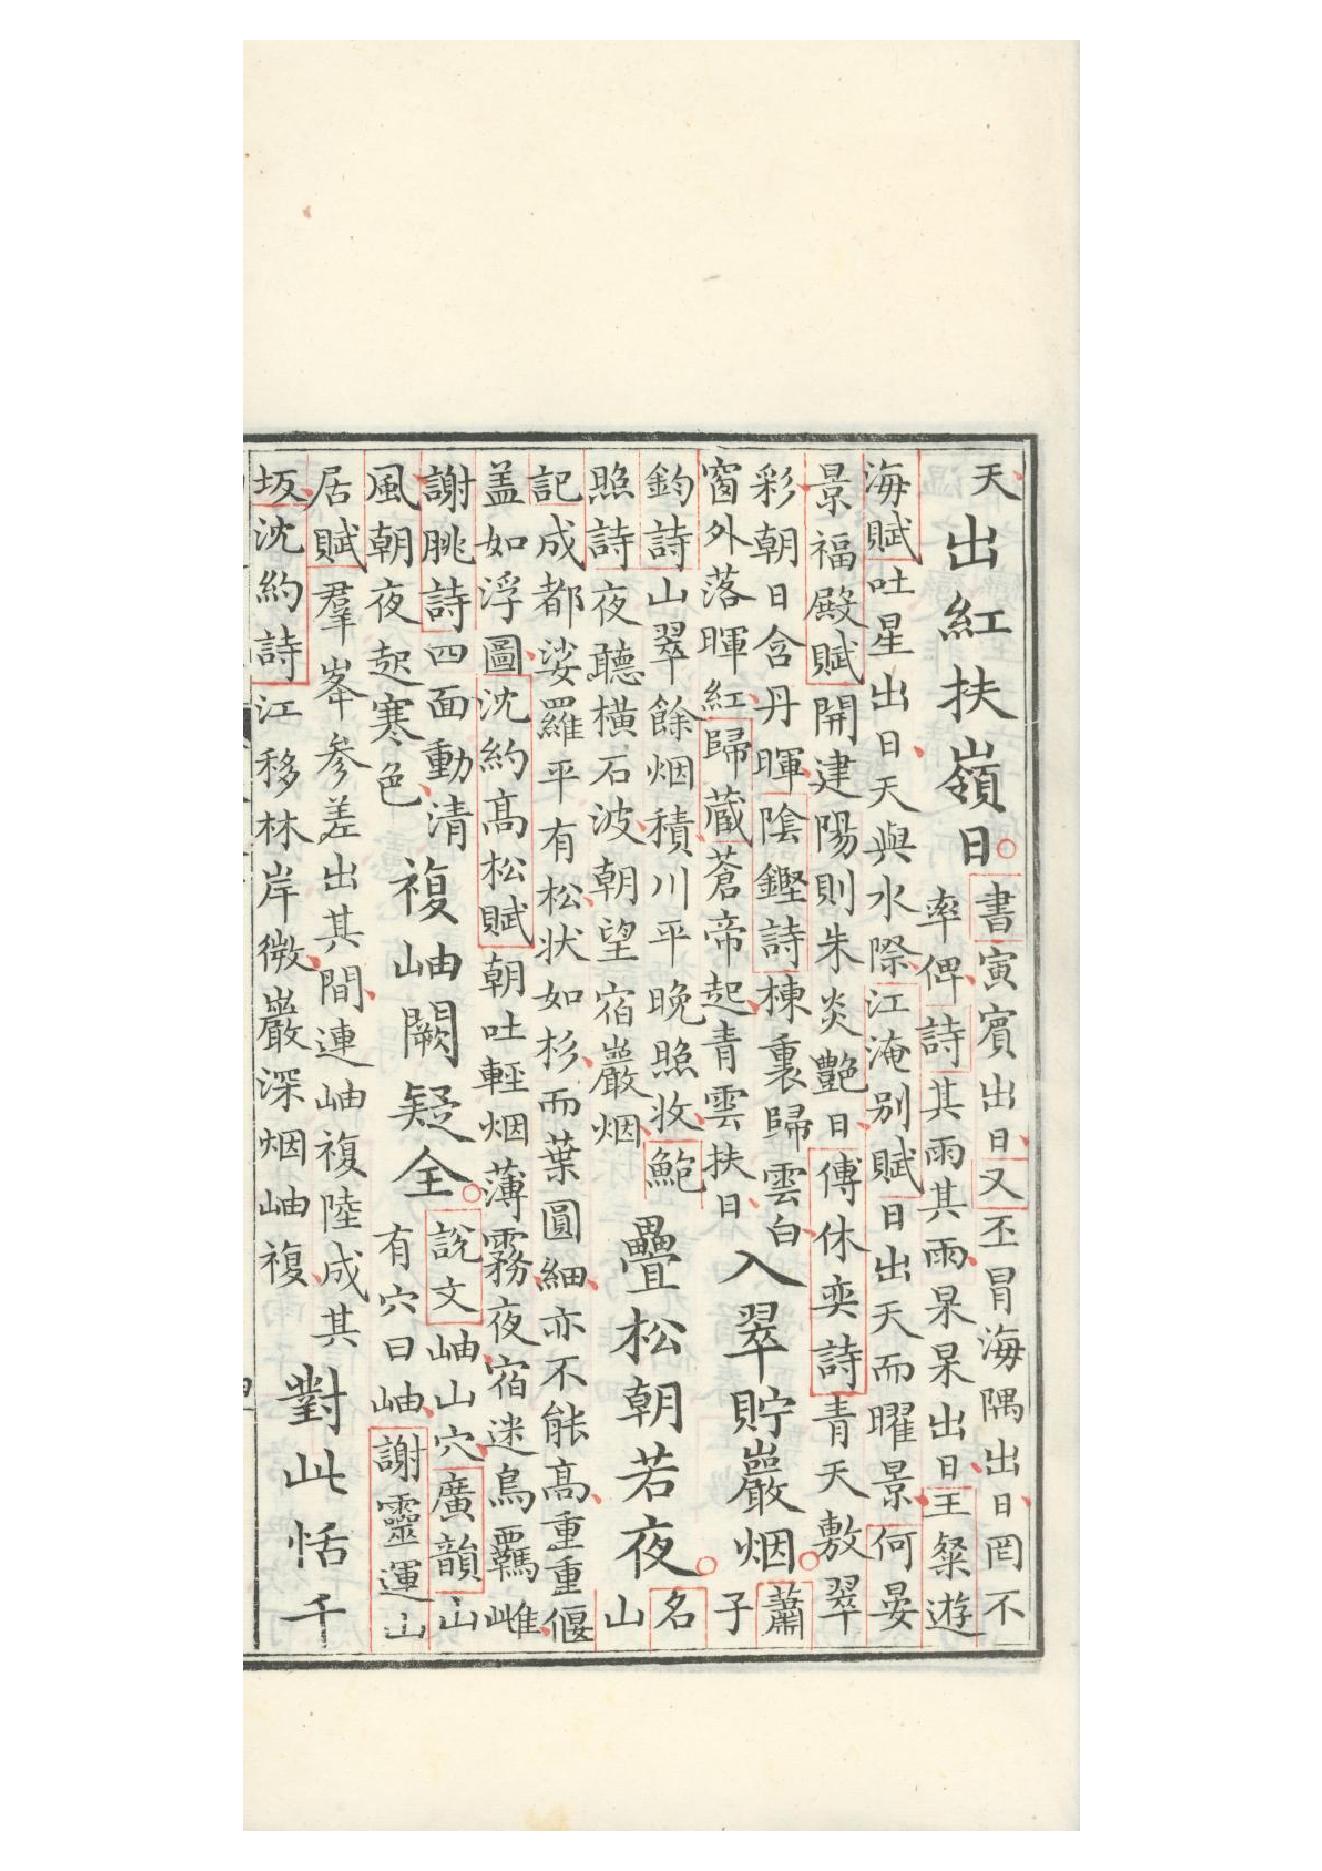 天
出紅扶嶺日
書寅賓出日又丕冒海隅出日罔不
率俾詩其雨其雨杲杲出日王粲遊
海賦吐星出日天與水際江淹别賦日出天而曜景何晏
景福殿賦開建陽則朱炎艷日傅休奕詩青天敷翠
彩朝日含丹暉陰鏗詩棟裏歸雲白
窗外落暉紅歸蔵蒼帝起青雲扶日
入翠貯巖烟
蕭
子
鈞詩山翠餘烟積川平晚照收鮑
照詩夜聽橫石波朝望宿巖烟
疊松朝若夜
名
山
記成都娑羅平有松状如杉而葉圓細亦不能高重重偃
盖如浮圖沈約高松賦朝吐輕烟薄霧夜宿迷鳥羈雌
謝朓詩四面動清
風朝夜起寒色
複岫闕疑全
說文岫山穴廣韻山
有穴曰岫謝靈運山
居賦羣峯参差出其間連岫複陸成其
坂沈約詩江移林岸微巖深烟岫複
對此恬千